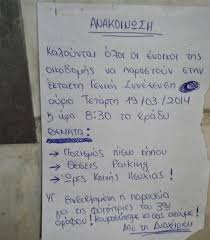 ΑΝΑΚΟΙΝΩΣΗ
Καλούνται όλοι οι ένοικοι της
οικοδομής να παραστούν στην
έκτακτη Γενική Συνέλευση
αύριο Τετάρτη 19/03/2014
ώρα 8:30 το βράδυ
ΘΕΜΑΤΑ:
→ Ποτισμός πίσω κήπου
→ Θέσεις Parking
→ Ώρες Κοινής Ησυχίας!
ΥΓ Επιβεβλημένη η παρουσία
για τις φοιτήτριες του 3ου
ορόφου! Κουραστήκαμε να σας ακούμε!
Από τη Διαχείριση